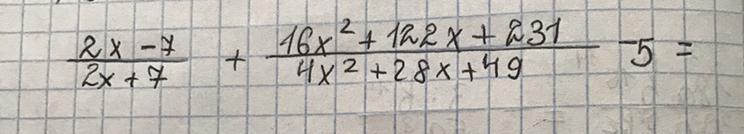 (2x - 7)/(2x + 7) + (16x² + 122x + 231)/(4x² + 28x + 49) - 5 =